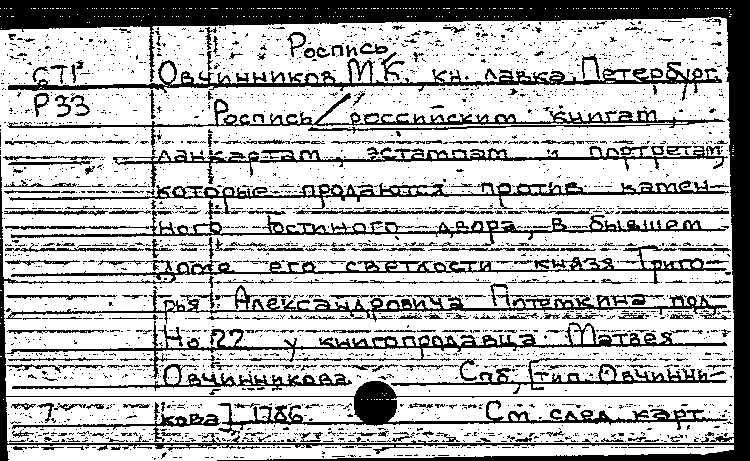 Роспись
СТР Овчинников, М.К., кн. лавка, Петербург.
Р33 Роспись / российским книгам,
ланкартам, эстампам и портретам,
которые продаются против камен-
ного Гостиного двора, в бывшем
доме его светлости князя Григо-
рья Александровича Потемкина под
No 22 у книгопродавца Матвея
Овчинникова. Спб, [тип. Овчинни-
7 кова], 1786. См. след. карт.